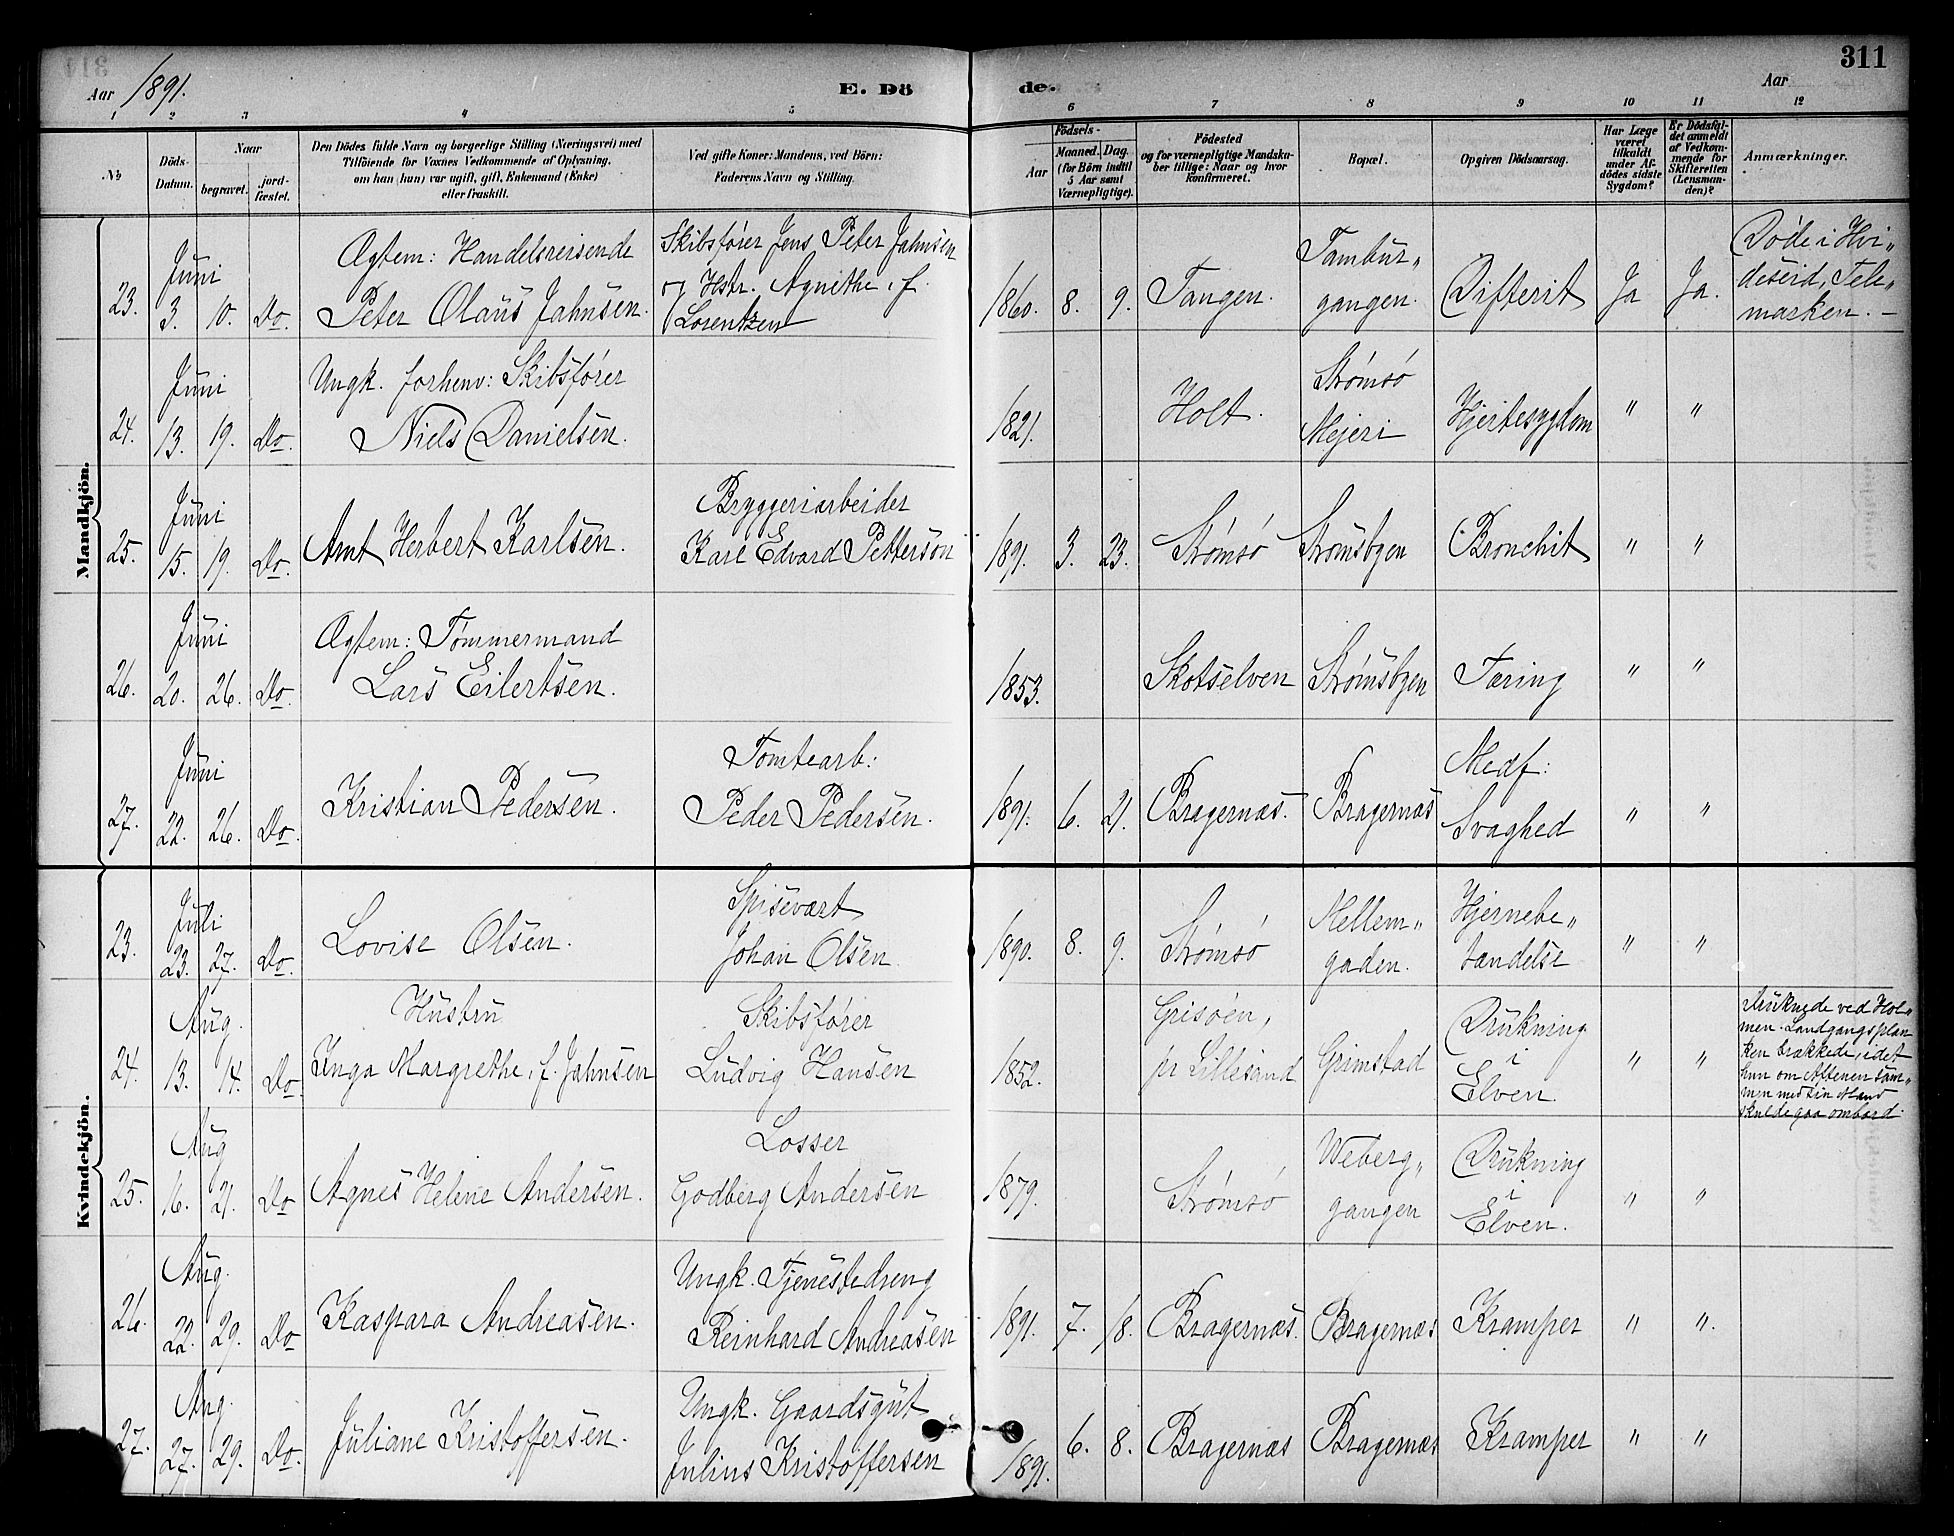 311
Aar 1891. E. Dö de. Aar
1 2 3 4 5 6 7 8 9 10 11 12
№
Döds-Datum.
Naar
begravet.
jord-fæstet.
Den Dödes fulde Navn og borgerlige Stilling (Næringsvei) med
Tilföiende for Voxnes Vedkommende af Oplysning,
om han (hun) var ugift, gift, Enkemand (Enke)
eller fraskilt.
Ved gifte Koner: Mandens, ved Börn:
Faderens Navn og Stilling.
Födsels-
Aar
Maaned. Dag.
(for Börn indtil
5 Aar samt
Værnepligtige).
Födested
og for værnepligtige Mandska-
ber tillige: Naar og hvor
konfirmeret.
Bopæl.
Opgiven Dödsaarsag.
Har Læge
været
tilkaldt
under Af-
dödes sidste
Sygdom?
Er Dödsfal-
det anmeldt
af Vedkom-
mende for
Skifteretten
(Lensman-
den)?
Anmærkninger.
Mandkjön.
23. Juni 3. 10. Do. Ægtem: Handelsreisende
Peter Olaus Jahnsen.
Skibsfører Jens Peter Jahnsen
og Hstr. Agnethe, f.
Lorentzen
1860. 8. 9. Tangen. Tambur„
gangen. Difterit Ja Ja. Døde i Hvi„
deseid, Tele„
marken. —
24. Juni 13. 19. Do. Ungk. forhenv: Skibsfører
Niels Danielsen.
1821. Holt. Strømsø
Mejeri Hjertesygdom " "
25. Juni 15. 19. Do. Arnt Herbert Karlsen.
Bryggeriarbeider
Karl Edvard Petterson
1891. 3. 23. Strømsø Strømsbyen Bronchit " "
26. Juni 20. 26. Do. Ægtem: Tømmermand
Lars Eilertsen.
1853. Skotselven Strømsbyen Tæring " "
27. Juni 22. 26. Do. Kristian Pedersen.
Tomtearb:
Peder Pedersen.
1891. 6. 21. Bragernæs. Bragernæs Medf:
Svaghed " "
Kvindekjön.
23. Juli 23. 27. Do. Lovise Olsen.
Spisevært
Johan Olsen
1890. 8. 9. Strømsø Mellem„
gaden. Hjernebe„
tændelse " "
24. Aug. 13. 14. Do. Hustru
Inga Margrethe, f. Jahnsen
Skibsfører
Ludvig Hansen
1852. Grisøen,
pr Lillesand Grimstad Drukning
i
Elven. " "
Druknede ved Hol„
men. Landgangsplan
ken brækkede, idet
hun om Aftenen sam„
men med sin Mand
skulde gaa ombord.
25. Aug 16. 21. Do Agnes Helene Andersen.
Losser
Godberg Andersen
1879. Strømsø Weberg„
gangen Drukning
i
Elven. " "
26. Aug. 22. 29. Do Kaspara Andreasen.
Ungk. Tjenestedreng
Reinhard Andreasen
1891. 7. 18. Bragernæs. Bragernæs Kramper " ".
27. Aug. 27. 29. Do. Juliane Kristoffersen.
Ungk. Gaardsgut
Julius Kristoffersen
1891. 6. 8. Bragernæs Bragernæs Kramper " "